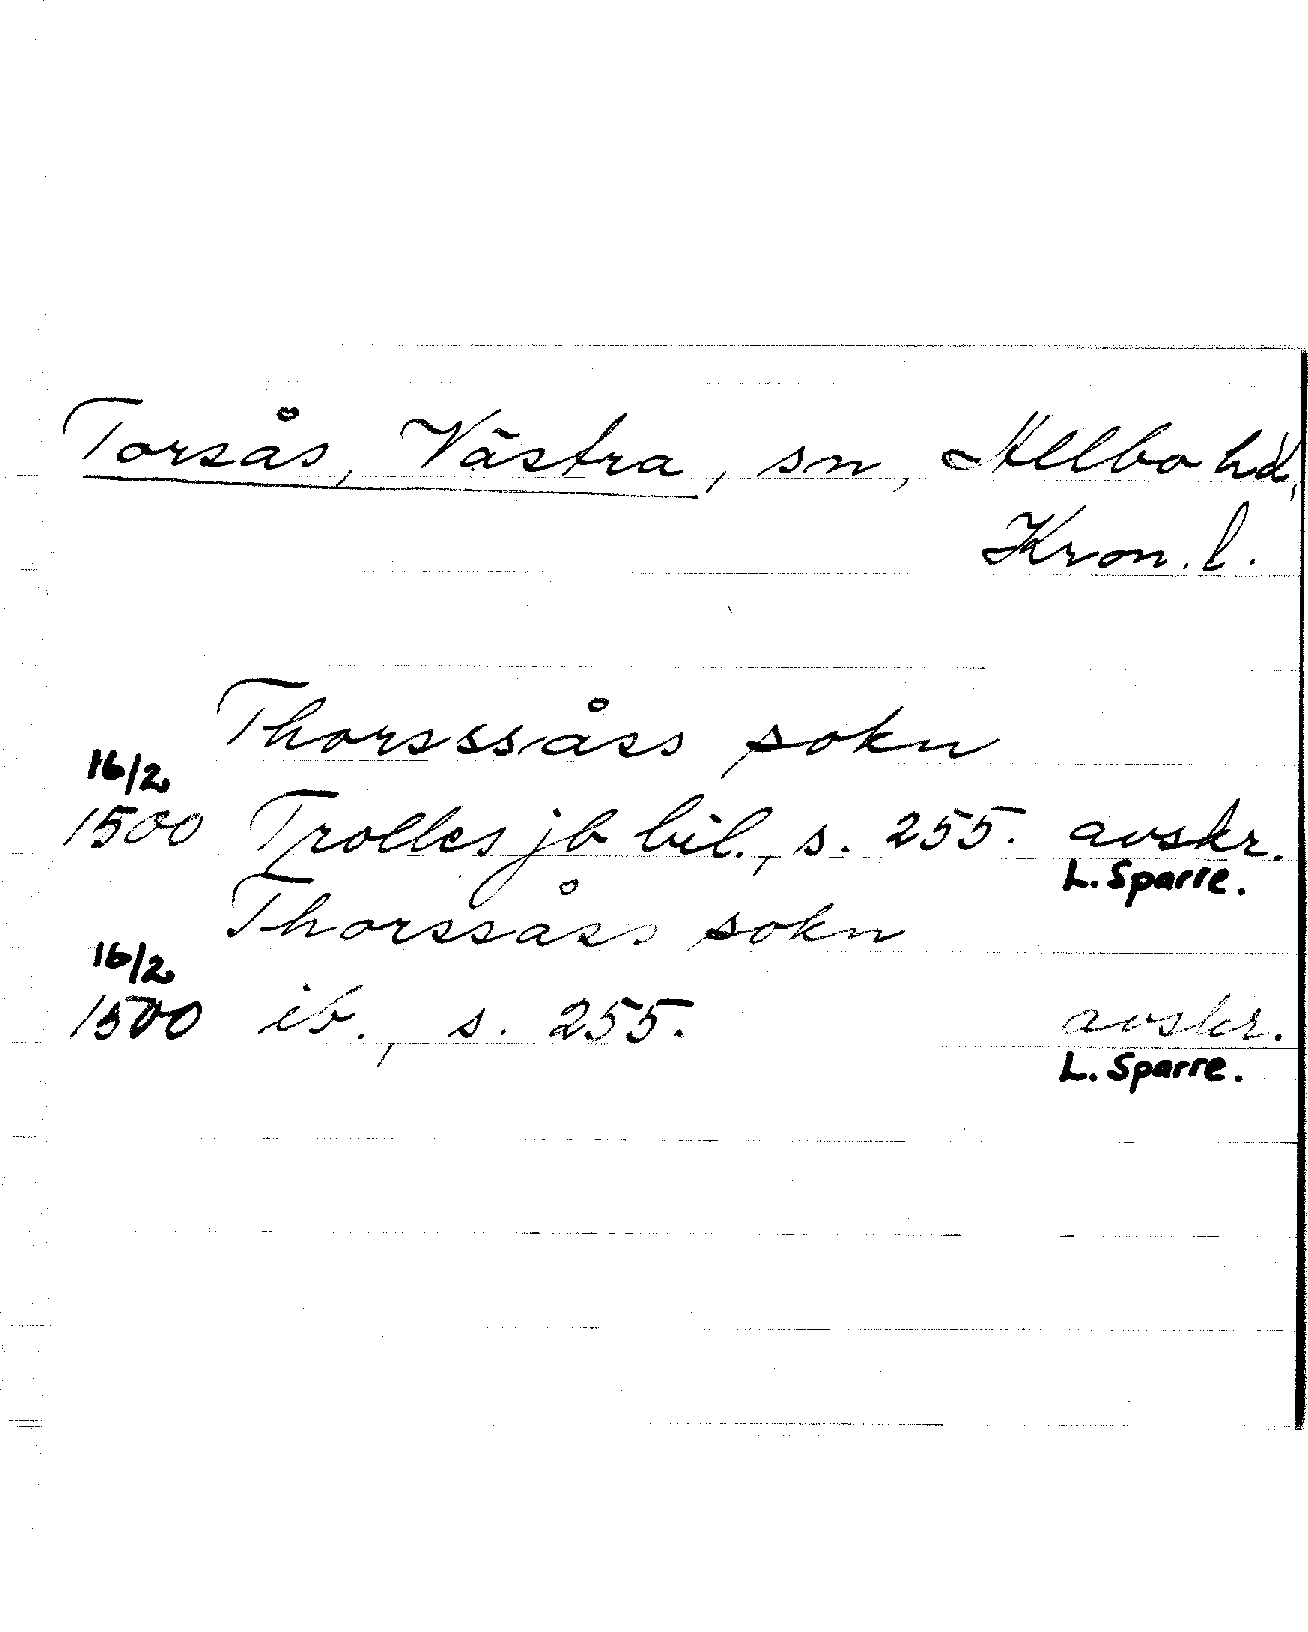 Torsås, Västra, sn, Allbo hd,
Kron. l.
Thorsssåss sokn
16/2
1500 Trolles jb bil., s. 255. avskr.
L. Sparre.
Thorssåss sokn
16/2
1500 ib., s. 255. avskr.
L. Sparre.